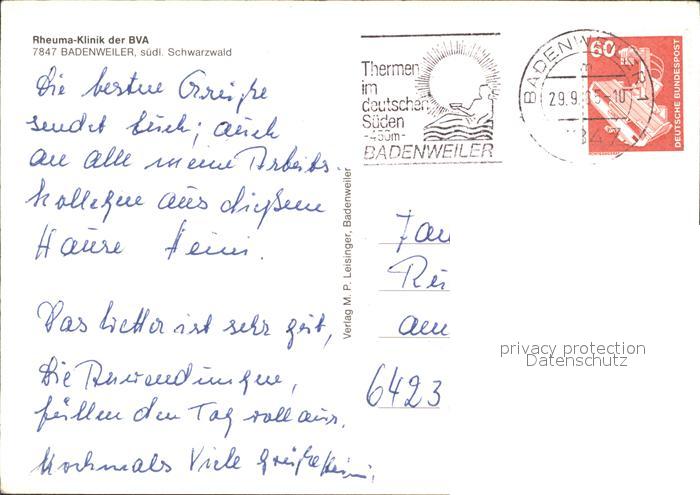 Rheuma-Klinik der BVA
7847 BADENWEILER, südl. Schwarzwald
Die besten Grüße
sendet Euch; auch
an alle meine Arbeits-
kollegen aus dießem
Hause Heini.
Das Wetter ist sehr gut,
Die Anwendungen,
füllen den Tag voll aus.
Nochmals Viele Grüße Heini.
Verlag M. P. Leisinger, Badenweiler
Thermen
im
deutschen
Süden
-450m-
BADENWEILER
BADENWEILER 1
29.9. -10
60
DEUTSCHE BUNDESPOST
Fam
am
6423
privacy protection
Datenschutz